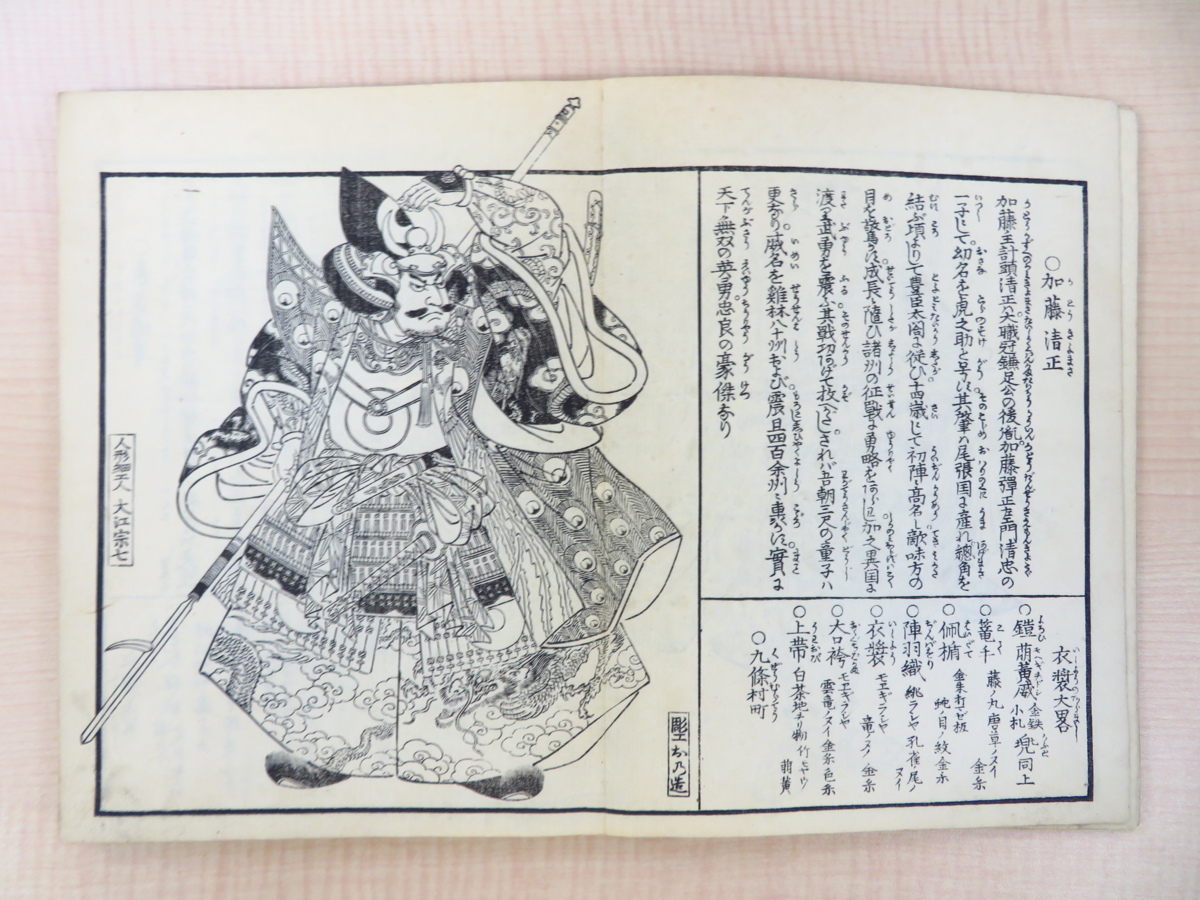 ○加藤清正
加藤主計頭清正ハ大職冠鎌足公の後胤加藤彈正左エ門清忠の
一子にして幼名を虎之助と号す其肇ハ尾張国に産れ總角を
結ぶ頃よりして豊臣太閤に従ひ十四歳にして初陣に高名し敵味方の
目を驚かす成長に隨ひ諸州の征戰に勇略をあらはし加之異国に
渡て武勇を震ふ其戰功あげて
されバ吾朝三尺の童子ハ
更なり威名を雞林八十州および震旦四百余州に東かす實に
天下無双の英勇忠良の豪傑なり
衣裝大畧
○鎧 萠黄威 金鉄小札 兜同上
○篭手 藤ノ丸唐草ノヌイ金糸
○佩楯 金朱打マゼ板 蛇ノ目ノ紋金糸
○陣羽織 緋ラシヤ孔雀ノ尾ノヌイ
○衣裝 モエギラシヤ 竜ノヌイ金糸
○大口袴 モエギラシヤ 雲竜ノヌイ金糸色糸
○上帯 白茶地 織物
○九條村町
彫工
人形細工人 大江宗七